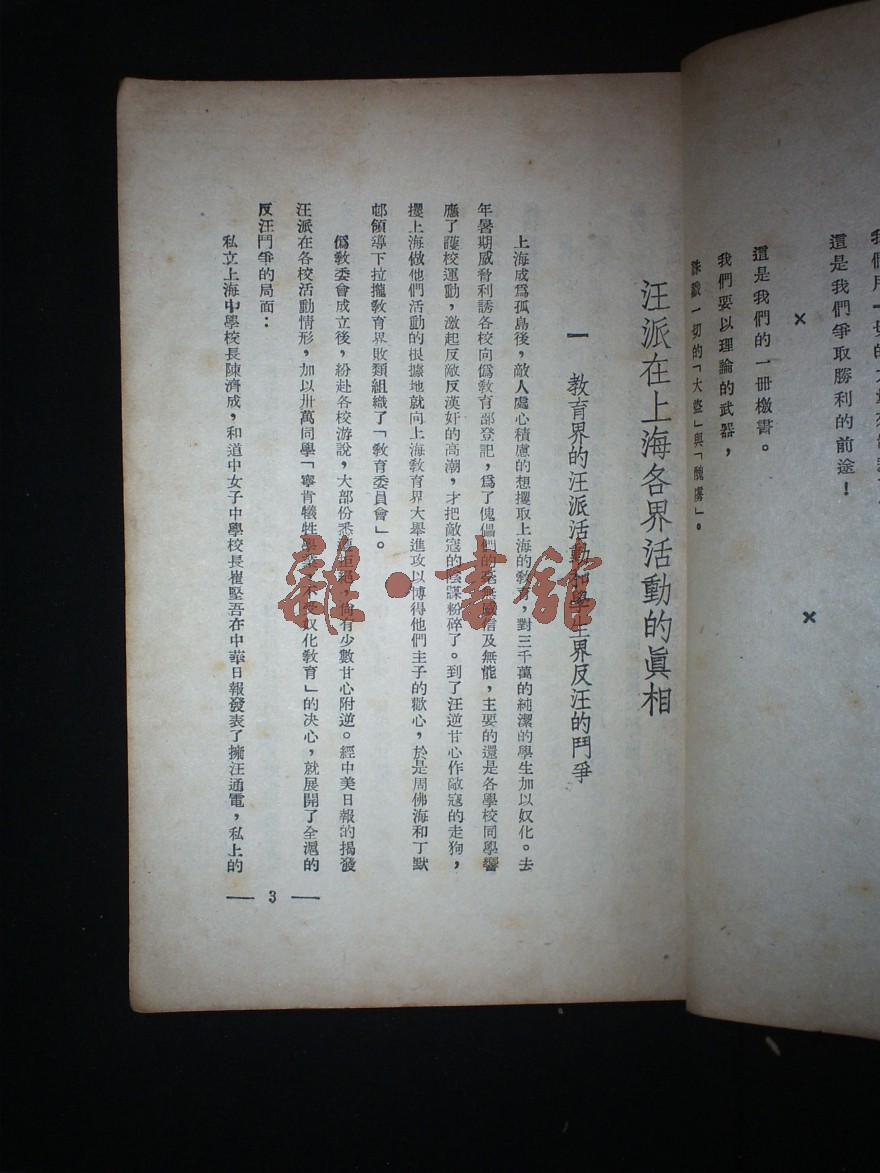 這是我們爭取勝利的前途！
×
×
這是我們的一冊檄書。
我們要以理論的武器，
誅戮一切的「大盜」與「醜虜」。
汪派在上海各界活動的眞相
一 教育界的汪派活動和學生界反汪的鬥爭
上海成爲孤島後，敵人處心積慮的想攫取上海的教育，對三千萬的純潔的學生加以奴化。去
年暑期威脅利誘各校向僞教育部登記，爲了傀儡們的毫無威信及無能，主要的還是各學校同學響
應了護校運動，激起反敵反漢奸的高潮，才把敵寇的陰謀粉碎了。到了汪逆甘心作敵寇的走狗，
攫上海做他們活動的根據地就向上海教育界大舉進攻以博得他們主子的歡心，於是周佛海和丁默
邨領導下拉攏敎育界敗類組織了「敎育委員會」。
僞敎委會成立後，紛赴各校游說，大部份悉遭拒絕，尙有少數甘心附逆。經中美日報的揭發
汪派在各校活動情形，加以卅萬同學「寧肯犧牲學業，不受奴化敎育」的決心，就展開了全滬的
反汪鬥爭的局面：
私立上海中學校長陳濟成，和道中女子中學校長崔堅吾在中華日報發表了擁汪通電，私上的
— 3 —
雜·書館